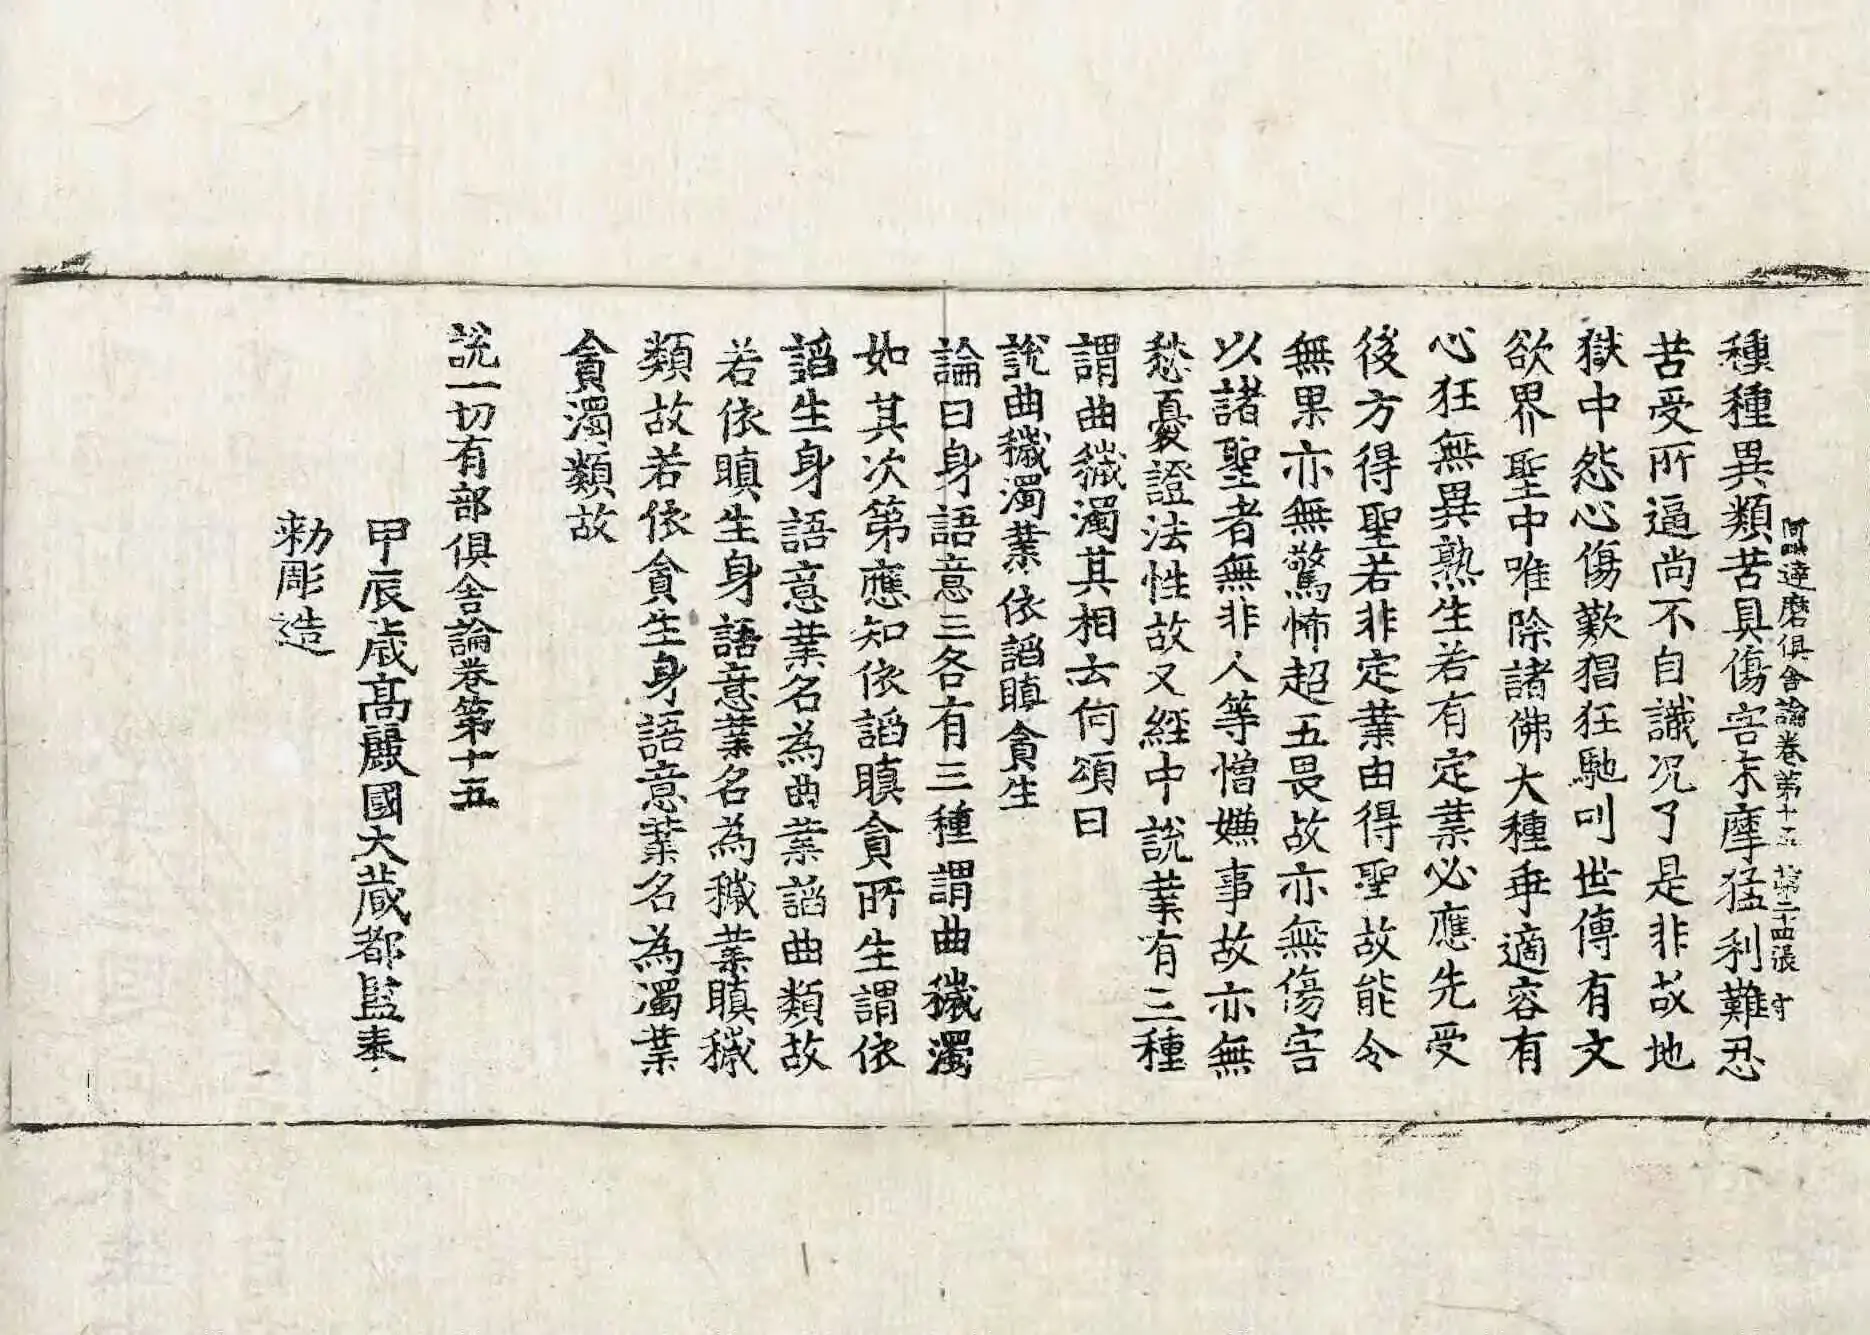 阿毗達磨俱舍論卷第十五 第二十四張 寸
種種異類苦具傷害末摩猛利難忍
苦受所逼尚不自識況了是非故地
獄中怨心傷歎猖狂馳叫世傳有文
欲界聖中唯除諸佛大種乖適容有
心狂無異熟生若有定業必應先受
後方得聖若非定業由得聖故能令
無果亦無驚怖超五畏故亦無傷害
以諸聖者無非人等憎嫌事故亦無
愁憂證法性故又經中說業有三種
謂曲穢濁其相云何頌曰
說曲穢濁業依諂瞋貪生
論曰身語意三各有三種謂曲穢濁
如其次第應知依諂瞋貪所生謂依
諂生身語意業名為曲業諂曲類故
若依瞋生身語意業名為穢業瞋穢
類故若依貪生身語意業名為濁業
貪濁類故
說一切有部俱舍論卷第十五
甲辰歲高麗國大藏都監奉
勑彫造